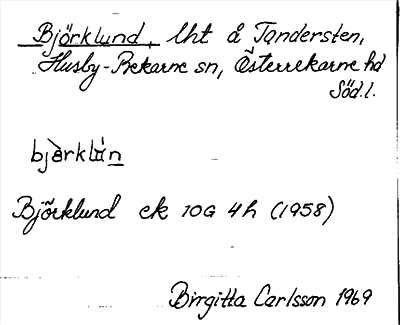 Björklund, lht å Tandersten,
Husby-Rekarne sn, Österrekarne hd
Söd.l.
bjärklún
Björklund ek 10G 4h (1958)
Birgitta Carlsson 1969